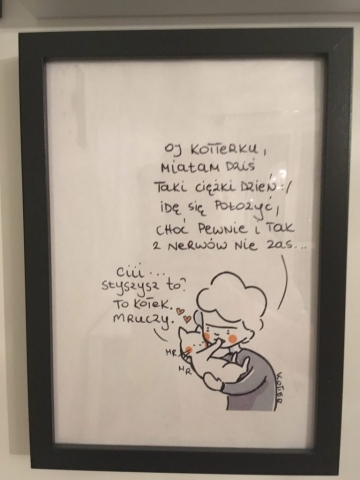 OJ KOTTERKU,
MIAŁAM DZIŚ
TAKI CIĘŻKI DZIEŃ :/
IDĘ SIĘ POŁOŻYĆ,
CHOĆ PEWNIE I TAK
Z NERWÓW NIE ZAS...
CIII...
SŁYSZYSZ TO?
TO KOTEK
MRUCZY.
MR
MR
KOTTER